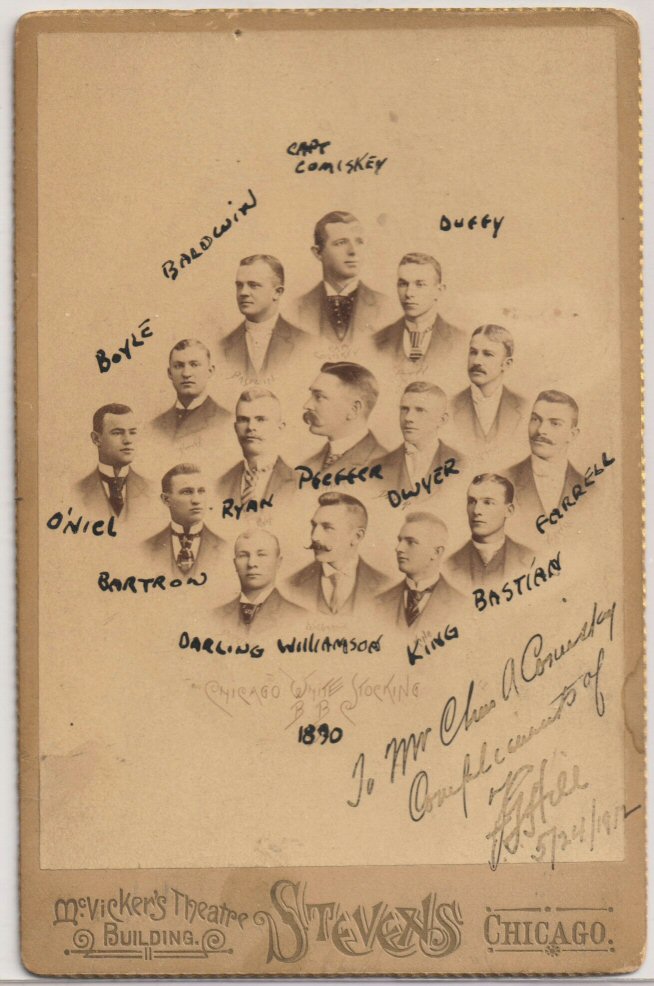 CAPT
COMISKEY
BALDWIN
DUFFY
BOYLE
O'NIEL
RYAN
PFEFFER
DWYER
FARRELL
BARTROW
BASTIAN
DARLING
WILLIAMSON
KING
CHICAGO WHITE STOCKING
B B C
1890
To Mr Chas A Comiskey
Compliments of
Hill
5/24/1912
McVicker's Theatre
BUILDING.
STEVENS
CHICAGO.